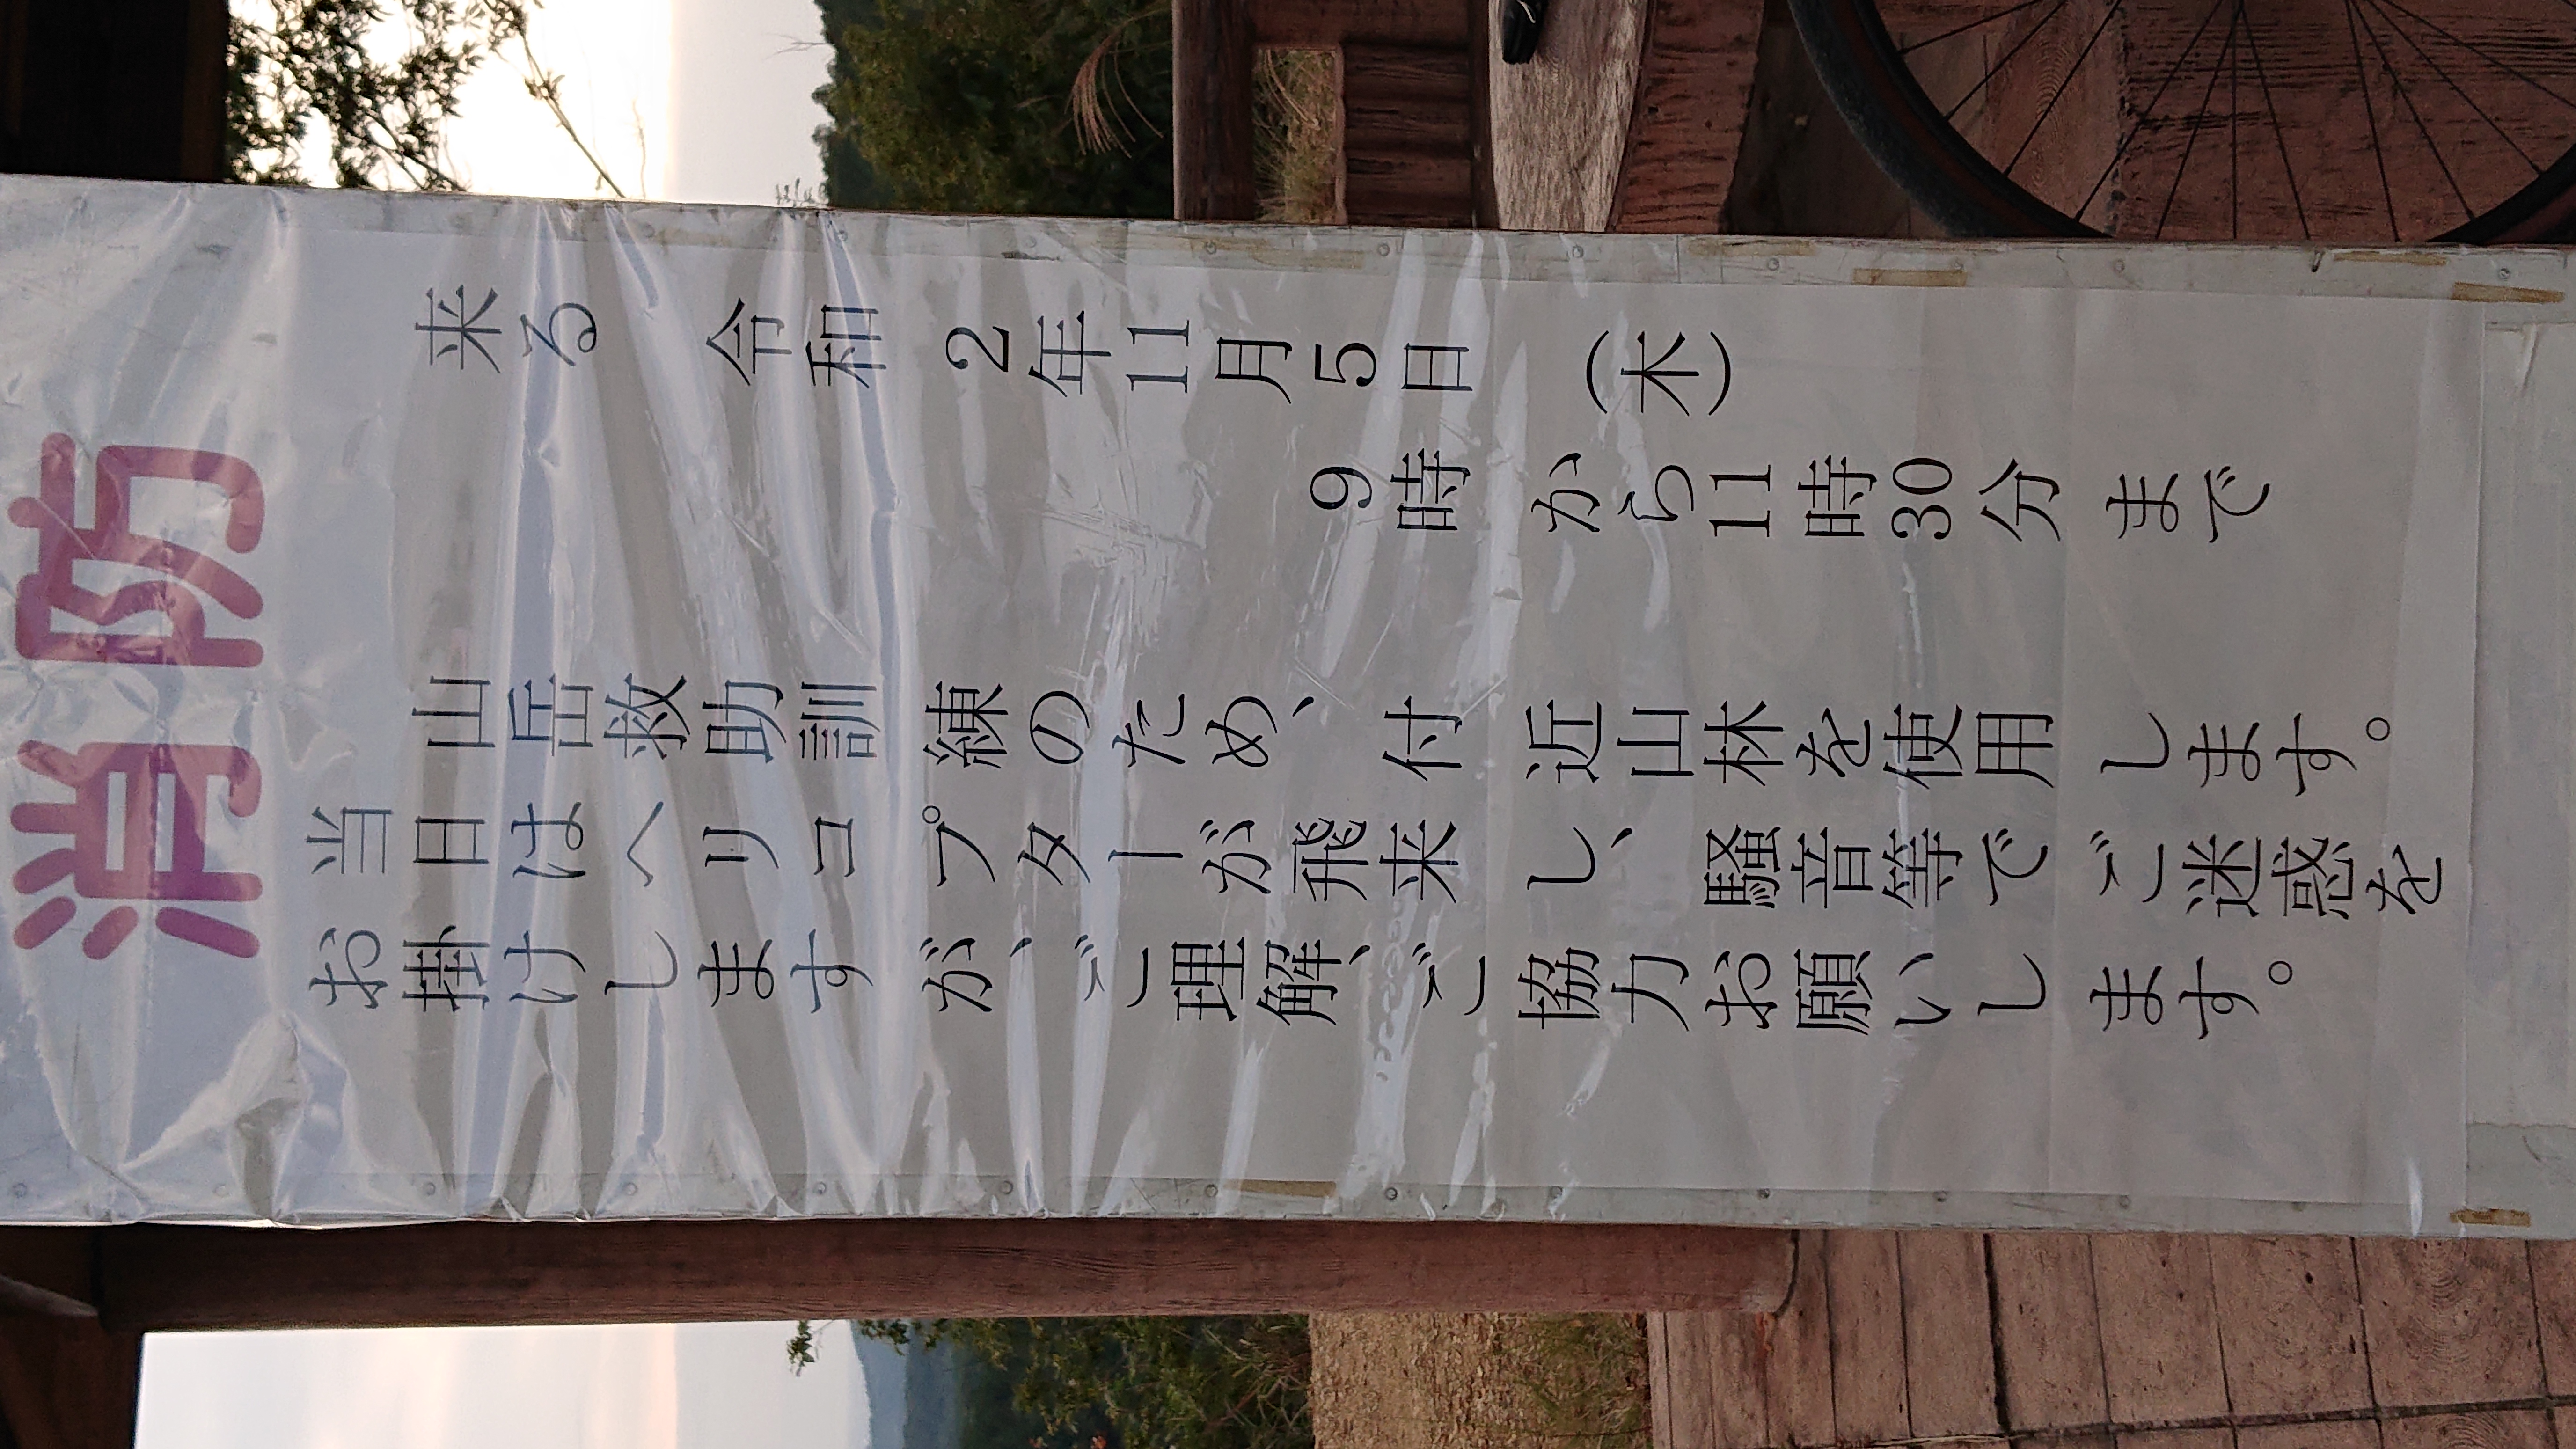 消防
来る 令和2年11月5日 (木)
9時から11時30分まで
山岳救助訓練のため、付近山林を使用します。
当日はヘリコプターが飛来し、騒音等でご迷惑を
お掛けしますが、ご理解、ご協力お願いします。